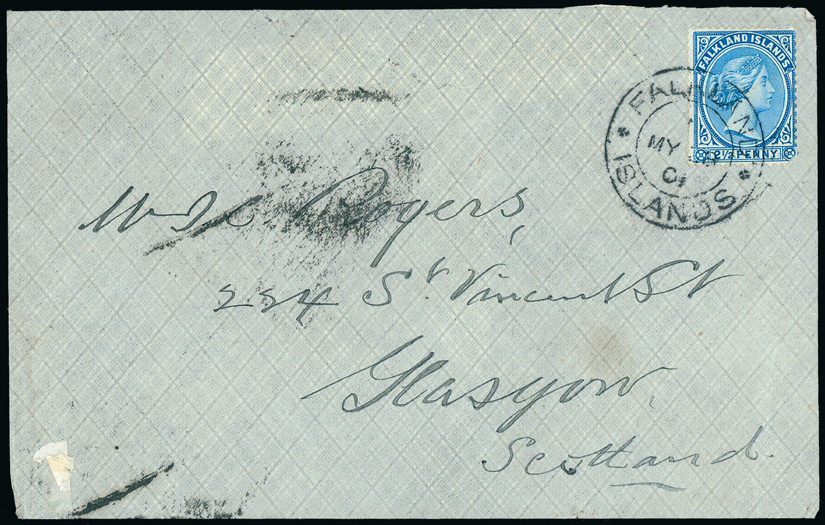 FALKLAND ISLANDS
2½ PENNY
FALKLAND
MY
01
ISLANDS
Rogers,
224 St. Vincent St
Glasgow,
Scotland.